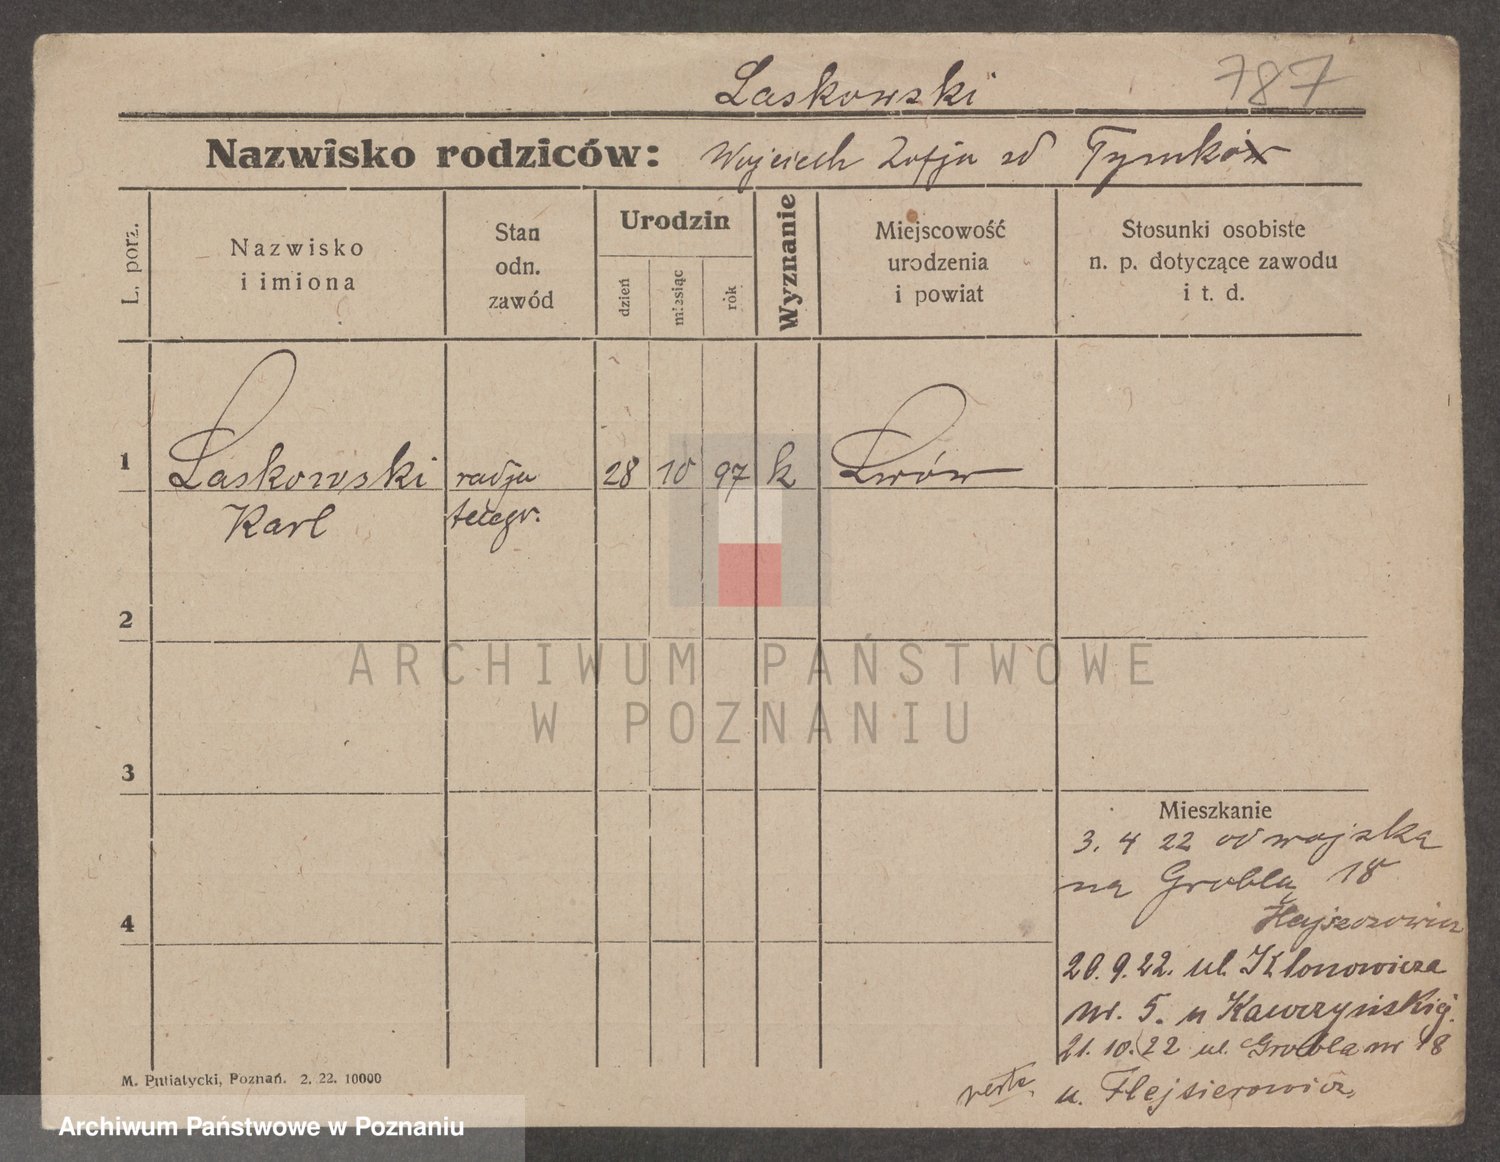 Laskowski 787
Nazwisko rodziców: Wojciech Zofja zd Tymków
L. porz.
Nazwisko
i imiona
Stan
odn.
zawód
Urodzin
dzień
miesiąc
rok
Wyznanie
Miejscowość
urodzenia
i powiat
Stosunki osobiste
n. p. dotyczące zawodu
i t. d.
1 Laskowski radjo 28 10 97 k Lwów
Karl telegr.
2
ARCHIWUM PAŃSTWOWE
W POZNANIU
3
Mieszkanie
3. 4 22 od wojska
na Grobla 18
4
20.9.22. ul. Klonowicza
nr. 5. u Kawczyńskiej.
21. 10. 22 ul. Grobla nr 18
u. Flejsierowicz,
verte
M. Putiatycki, Poznań. 2. 22. 10000
Archiwum Państwowe w Poznaniu